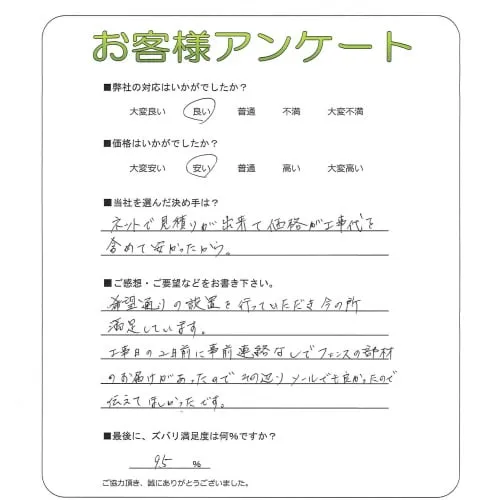 お客様アンケート
■弊社の対応はいかがでしたか？
大変良い 良い 普通 不満 大変不満
■価格はいかがでしたか？
大変安い 安い 普通 高い 大変高い
■当社を選んだ決め手は？
ネットで見積りが出来て価格が工事代を
含めて安かったから。
■ご感想・ご要望などをお書き下さい。
希望通りの設置を行っていただき今の所
満足しています。
工事日の2日前に事前連絡なしでフェンスの部材
のお届けがあったのでその辺りメールでも良かったので
伝えてほしかったです。
■最後に、ズバリ満足度は何％ですか？
95 ％
ご協力頂き、誠にありがとうございました。